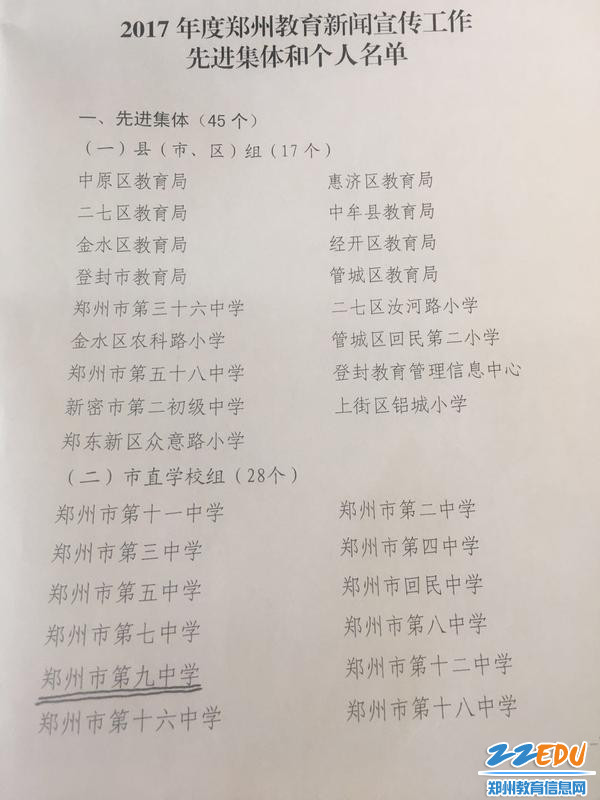 2017 年度郑州教育新闻宣传工作
先进集体和个人名单
一、先进集体（45 个）
（一）县（市、区）组（17 个）
中原区教育局 惠济区教育局
二七区教育局 中牟县教育局
金水区教育局 经开区教育局
登封市教育局 管城区教育局
郑州市第三十六中学 二七区汝河路小学
金水区农科路小学 管城区回民第二小学
郑州市第五十八中学 登封教育管理信息中心
新密市第二初级中学 上街区铝城小学
郑东新区众意路小学
（二）市直学校组（28个）
郑州市第十一中学 郑州市第二中学
郑州市第三中学 郑州市第四中学
郑州市第五中学 郑州市回民中学
郑州市第七中学 郑州市第八中学
郑州市第九中学 郑州市第十二中学
郑州市第十六中学 郑州市第十八中学
ZZEDU
郑州教育信息网